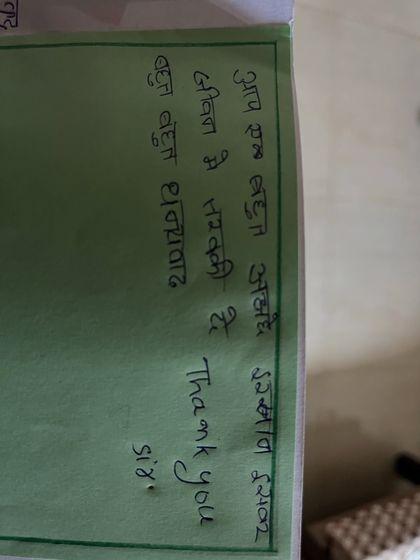 आप एक बहुत अच्छे इंसान ईश्वर
जीवन मे तरक्की दे Thank you
बहुत बहुत धन्यवाद
Sir.